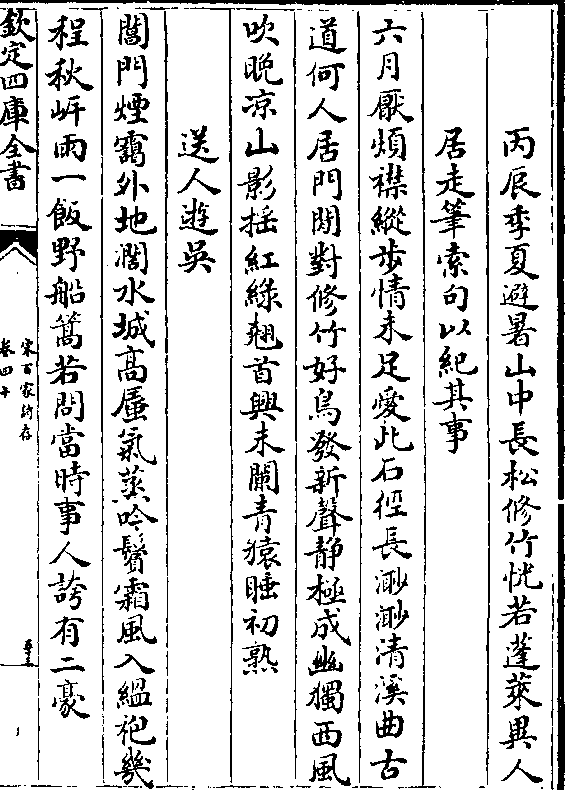 丙辰季夏避暑山中長松修竹恍若蓬萊異人
居走筆索句以紀其事
六月厭煩襟縱步情未足愛此石徑長渺渺清溪曲古
道何人居門閉對修竹好鳥發新聲静極成幽獨西風
吹晚凉山影揺紅緑翹首興未闌青猿睡初熟
送人遊吳
閶門煙靄外地濶水城高蜃氣蒸吟鬢霜風入緼袍幾
程秋岍雨一飯野船篙若問當時事人誇有二豪
欽定四庫全書
宋百家詩存
卷四十